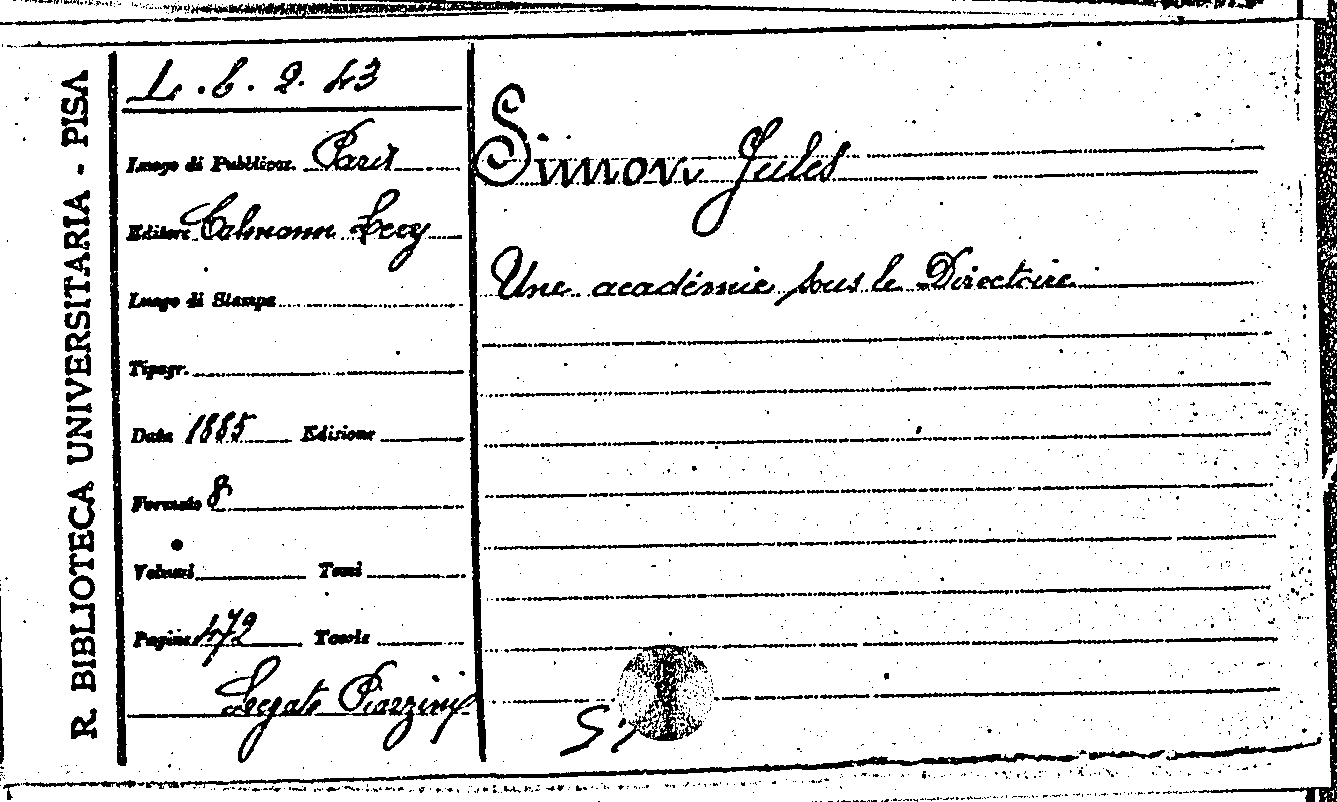 R. BIBLIOTECA UNIVERSITARIA - PISA
L. b. 2. 43
Luogo di Pubblicaz. Paris
Editore Calmann Levy
Luogo di Stampa
Tipogr.
Data 1885 Edizione
Formato 8
Volumi Tomi
Pagine 472 Tavole
Legato Piazzini
Simon Jules
Une académie sous le Directoire